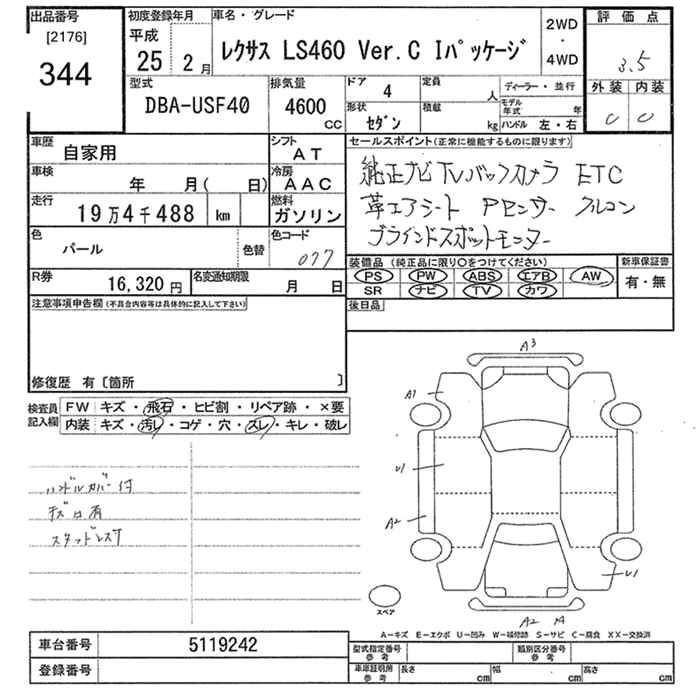 出品番号
[2176]
344
初度登録年月
平成
25年 2月
車名・グレード
レクサス LS460 Ver.C Iパッケージ
2WD
・
4WD
評価点
3.5
外装 内装
C C
型式
DBA-USF40
排気量
4600
CC
ドア
4
定員
人
形状
セダン
積載
kg
ディーラー・並行
モデル年式 年
ハンドル 左・右
車歴
自家用
シフト
AT
車検
年 月( 日)
冷房
AAC
走行
19万4千488 km
燃料
ガソリン
色
パール
色替
色コード
077
R券
16,320円
名変通知期限
月 日
セールスポイント(正常に機能するものに限ります)
純正ナビ TV バックカメラ ETC
革エアシート Pセンサー フルコン
ブラインドスポットモニター
装備品 (純正品に限り○をつけてください)
PS PW ABS エアB AW
SR ナビ TV カワ
新車保証書
有・無
後日品
注意事項申告欄(不具合内容等は具体的に記入して下さい)
修復歴 有〔箇所 〕
検査員記入欄
FW キズ・飛石・ヒビ割・リペア跡・×要
内装 キズ・汚レ・コゲ・穴・ズレ・キレ・破レ
ハンドルカバー付
キズロ有
スタッドレス
A3
A1
U1
A2
U1
A2
スペア
A-キズ E-エクボ U-凹み W-補修跡 S-サビ C-腐食 XX-交換済
車台番号
5119242
登録番号
型式指定番号
参考
類別区分番号
参考
車庫証明用
参考
長さ cm
幅 cm
高さ cm